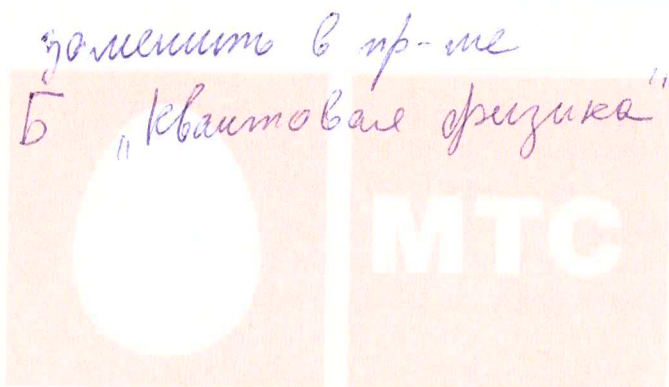 заменить в пр-ме
Б „Квантовая физика"
МТС